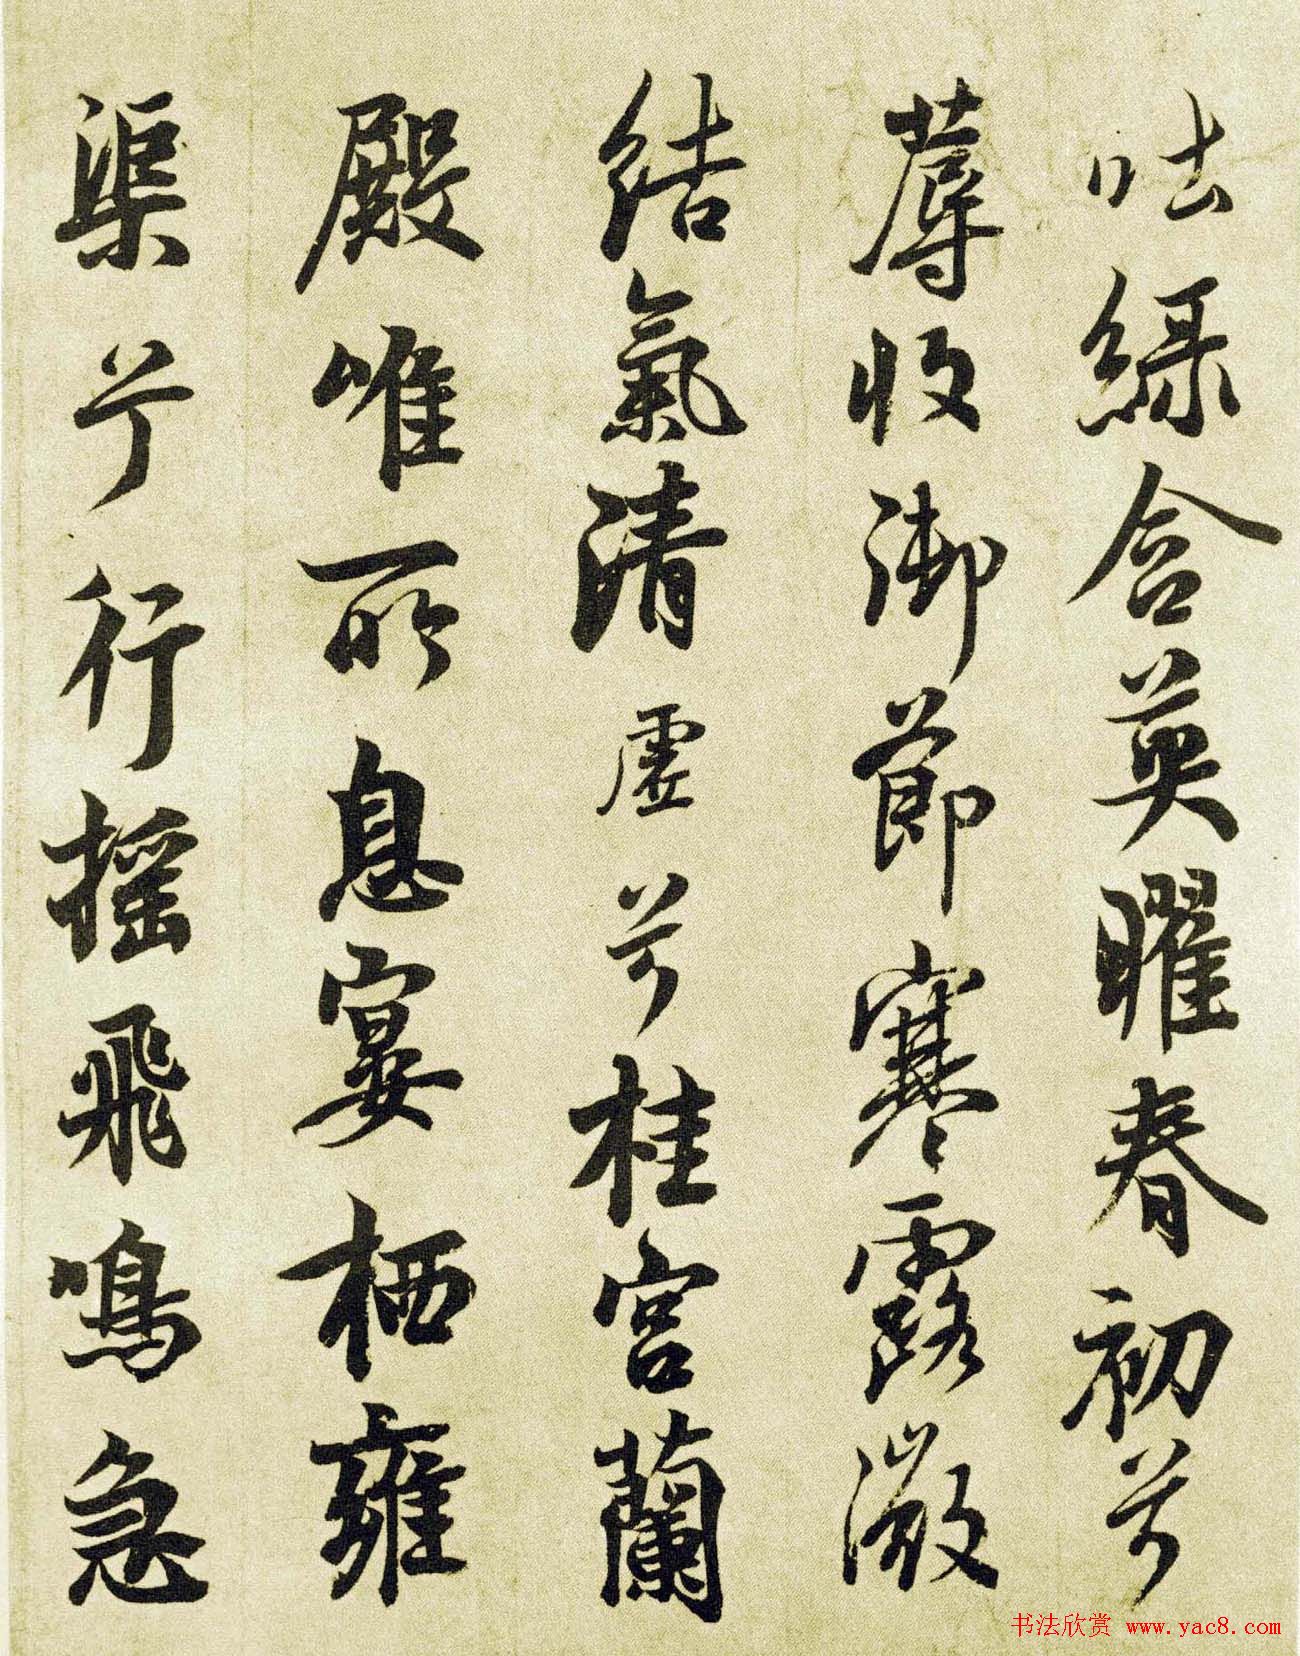 吐綠含英曜春初兮
蓐收御節寒露微
結氣清虛兮桂宮蘭
殿唯所息宴栖雍
渠兮行摇飛鳴急
书法欣赏 www.yac8.com